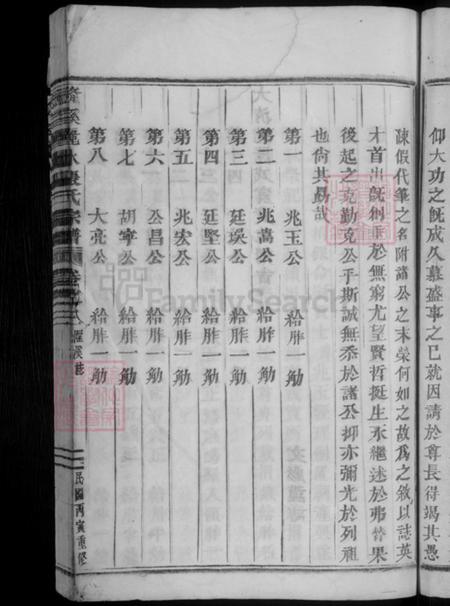 仰大功之旣成久墓盛事之已就因請於尊長得竭其愚
陳假代筆之名附諸公之末榮何如之故爲之敘以誌英
才首出旣創垂於無窮尤望賢哲挺生永繼述於弗替果
後起之克勤克公乎斯誠無忝於諸公抑亦彌光於列祖
也尙其勗哉
第一 兆玉公 給胙一觔
第二 兆蒿公 給胙一觔
第三 廷埃公 給胙一觔
第四 廷堅公 給胙一觔
第五 兆宏公 給胙一觔
第六 公昌公 給胙一觔
第七 胡寧公 給胙一觔
第八 大亮公 給胙一觔
氏宗譜 卷之八
民國丙寅重修
FamilySearch